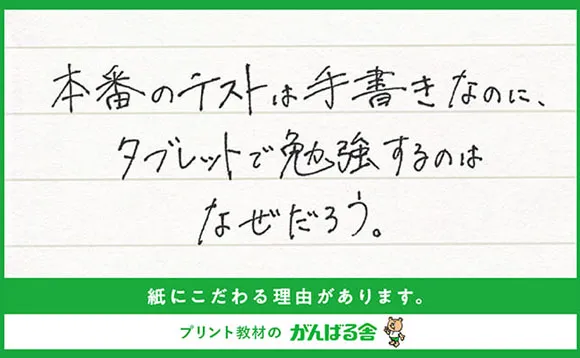 本番のテストは手書きなのに、
タブレットで勉強するのは
なぜだろう。
紙にこだわる理由があります。
プリント教材の がんばる舎